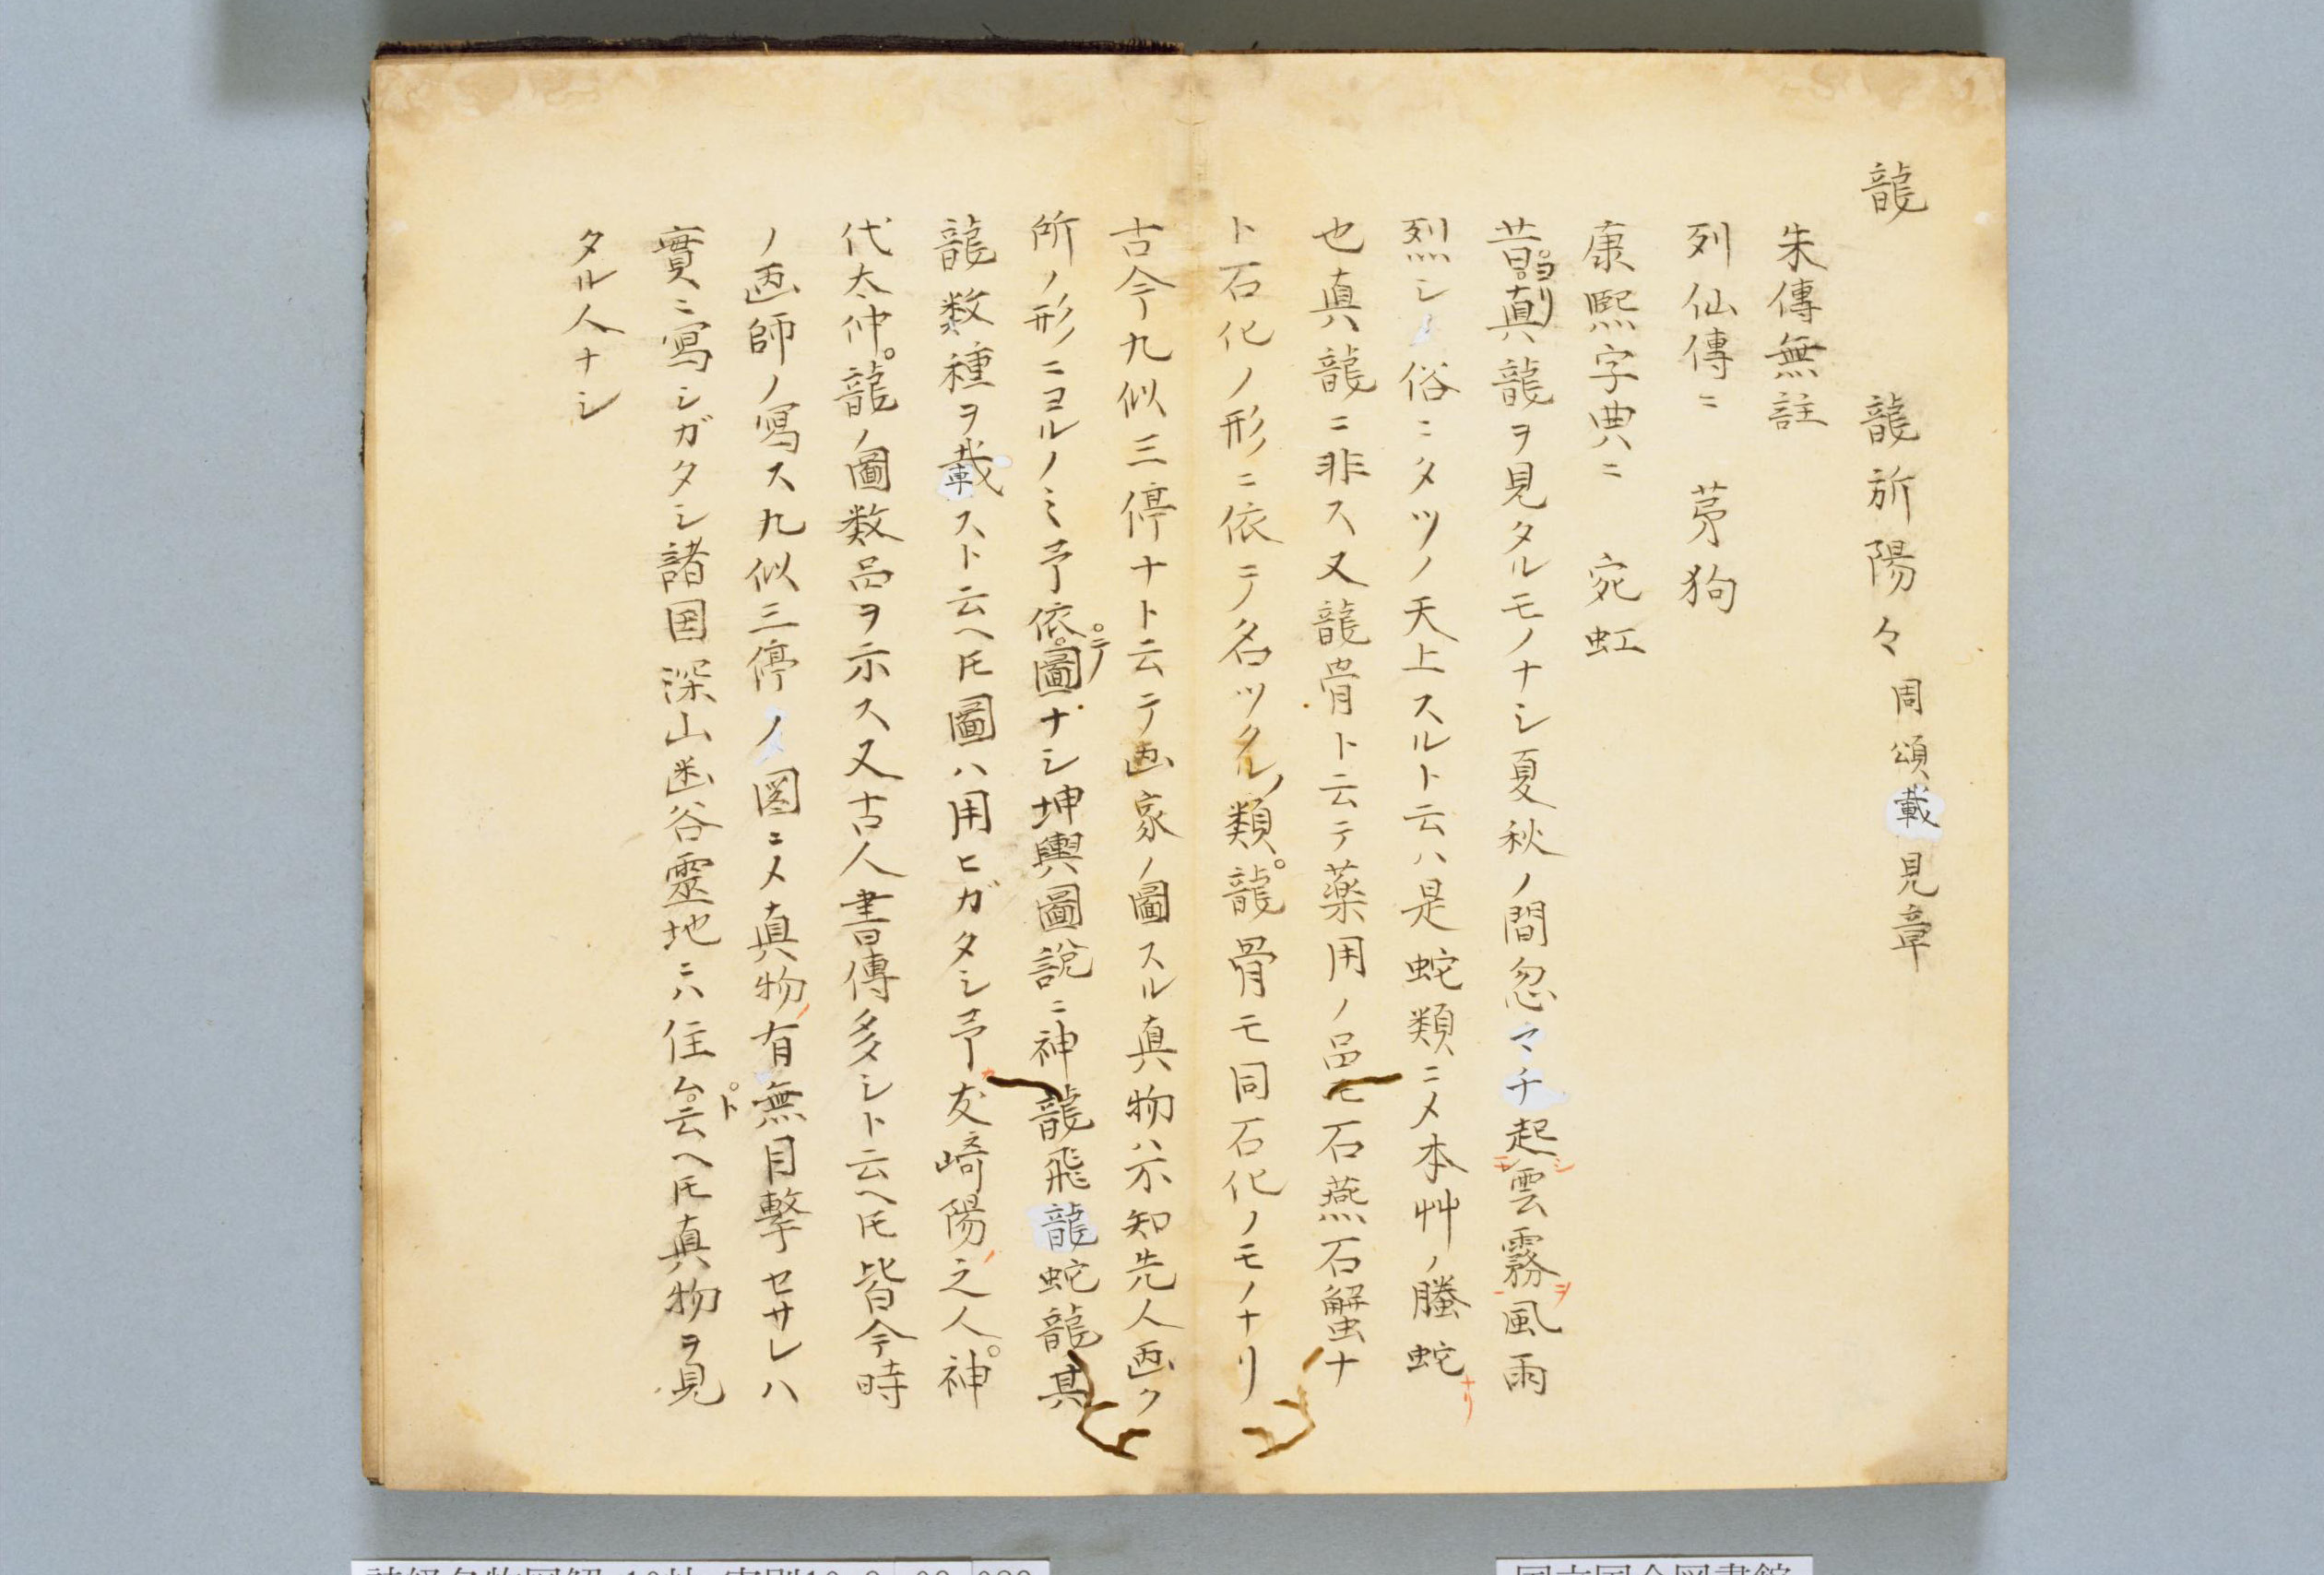 龍　龍旂陽々周頌載見章
朱傳無註
列仙傳ニ　茅狗
康熙字典ニ　宛虹
昔ヨリ真龍ヲ見タルモノナシ夏秋ノ間忽マチ起シ雲霧ヲ風雨
烈シノ俗ニタツノ天上スルト云ハ是蛇類ニ〆本艸ノ螣蛇ナリ
也真龍ニ非ス又龍骨ト云テ薬用ノ品モ石燕石蟹ナ
ト石化ノ形ニ依テ名ツクルノ類龍骨モ同石化ノモノナリ
古今九似三停ナト云テ画家ノ圖スル真物ハ不知先人画ク
所ノ形ニヨルノミ予依テ圖ナシ坤輿圖說ニ神龍飛龍蛇龍其
龍数種ヲ載スト云ヘ𪜈圖ハ用ヒガタシ予友崎陽ノ之人神
代太仲龍ノ圖数品ヲ示ス又古人書傳多シト云ヘ𪜈皆今時
ノ画師ノ寫ス九似三停ノ図ニ〆真物ノ有無目擊セサレハ
實ニ寫シガタシ諸国深山幽谷霊地ニハ住ムト云ヘ𪜈真物ヲ見
タル人ナシ
国立国会図書館